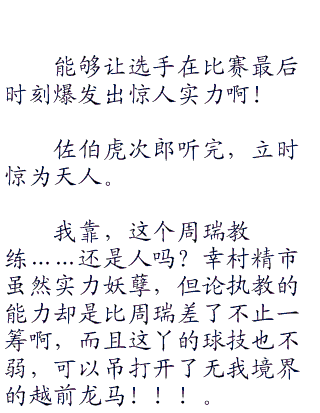 能够让选手在比赛最后
时刻爆发出惊人实力啊！
佐伯虎次郎听完，立时
惊为天人。
我靠，这个周瑞教
练……还是人吗？幸村精市
虽然实力妖孽，但论执教的
能力却是比周瑞差了不止一
筹啊，而且这丫的球技也不
弱，可以吊打开了无我境界
的越前龙马！！！。